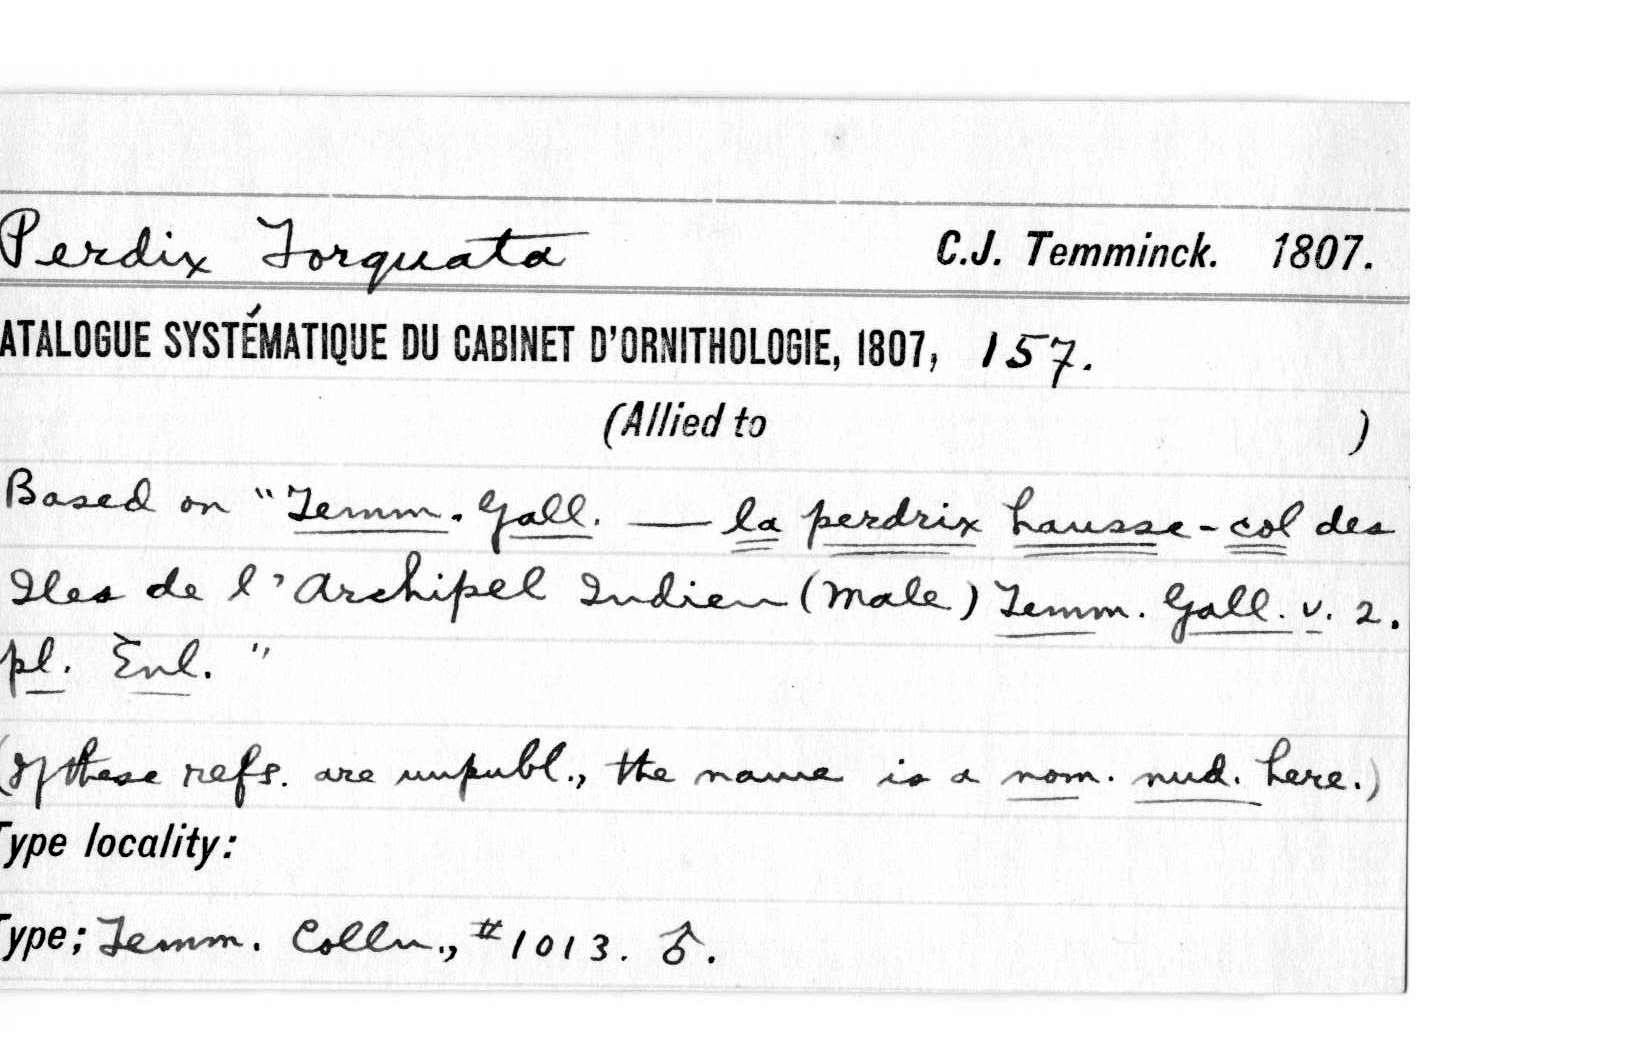 Perdix Torquata C.J. Temminck. 1807.
ATALOGUE SYSTÉMATIQUE DU CABINET D'ORNITHOLOGIE, 1807, 157.
(Allied to )
Based on "Temm. Gall. — la perdrix hausse-col des
Iles de l'Archipel Indien (Male) Temm. Gall. v. 2.
pl. Enl."
(If these refs. are unpubl., the name is a nom. nud. here.)
Type locality:
Type; Temm. Colln., #1013. ♂.